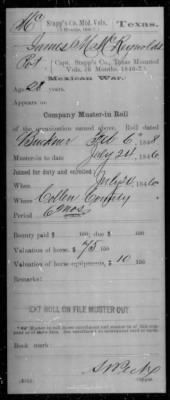 Mc Stapp's Co. Mtd. Vols. Texas.
James M. McReynolds
Pvt Capt. Stapp's Co., Texas Mounted Vols.
Mexican War.
Age 28 years.
Appears on
Company Muster-in Roll
of the organization named above. Roll dated
Feb 6, 1848
Muster-in to date July 24, 1846
Joined for duty and enrolled:
When July 20, 1846
Where Collin County
Period 6 mos
Bounty paid $ 100; due $ 100
Valuation of horse, $ 75 100
Valuation of horse equipments, $ 10 100
Remarks:
EXT ROLL ON FILE MUSTER OUT
Book mark:
Copyist.